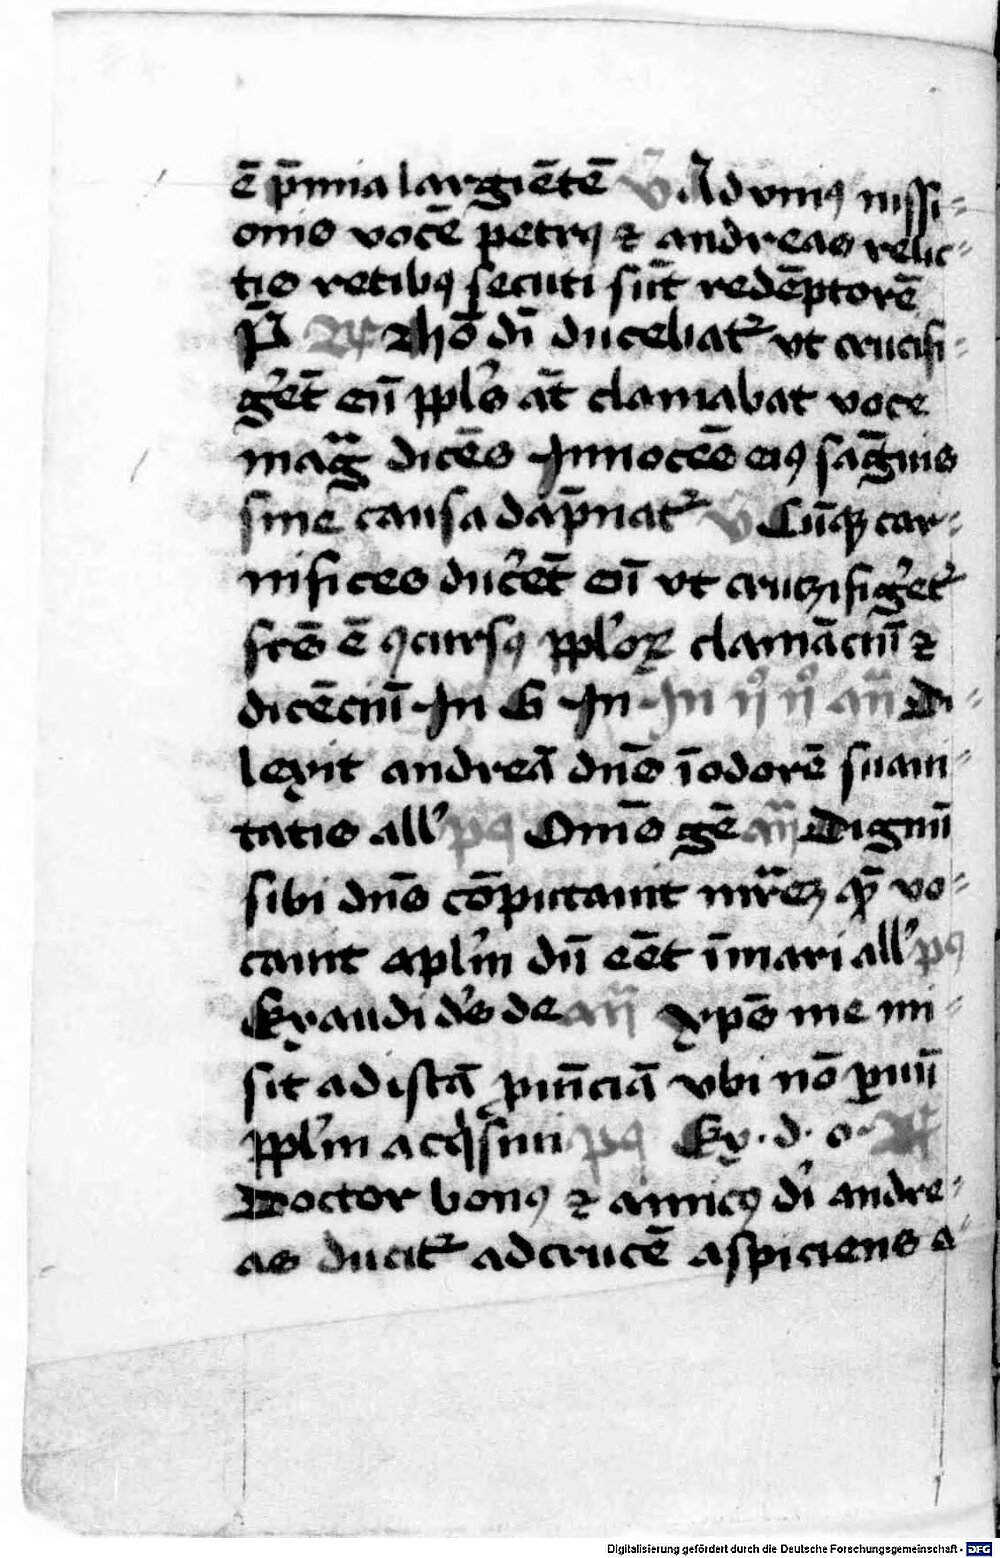 ē p̄mia largiētē v̄ Ad vniꝰ iussi=
onis vocē petrꝰ ⁊ andreas relic=
tis retibꝰ secuti sūt redēptorē
P̄ R̄ ho dū ducebat᷑ vt crucifi=
g̓et eū ppl̓s āt clamabat voce
mag̃ dicēs Innocēs eiꝰ sāguis
sine causa dāpnat᷑ v̄ Cūqꝫ car=
nifices duc̓et eū vt crucifig̓et᷑
fc̄s ē ꝯcursꝰ ppl̓oꝝ clamāciū ⁊
dicēciū In G In In iiº nº an̄ Di=
lexit andreā dn̄s ī odorē suaui=
tatis all̓ ps̄ Om̄s gē an̄ Dignū
sibi dn̄s cōputauit mr̄eꝫ quē vo=
cauit apl̓m dū eēt ī mari all̓ ps̄
Exaudi d̓s de an̄ xp̄s me mi=
sit ad istā ꝓuīciā vbi nō ꝑuū
ppl̓m acq̓siui ps̄ Ex· d· o· R̄
Doctor bonꝰ ⁊ amicꝰ di andre=
as ducit᷑ ad crucē aspiciens a